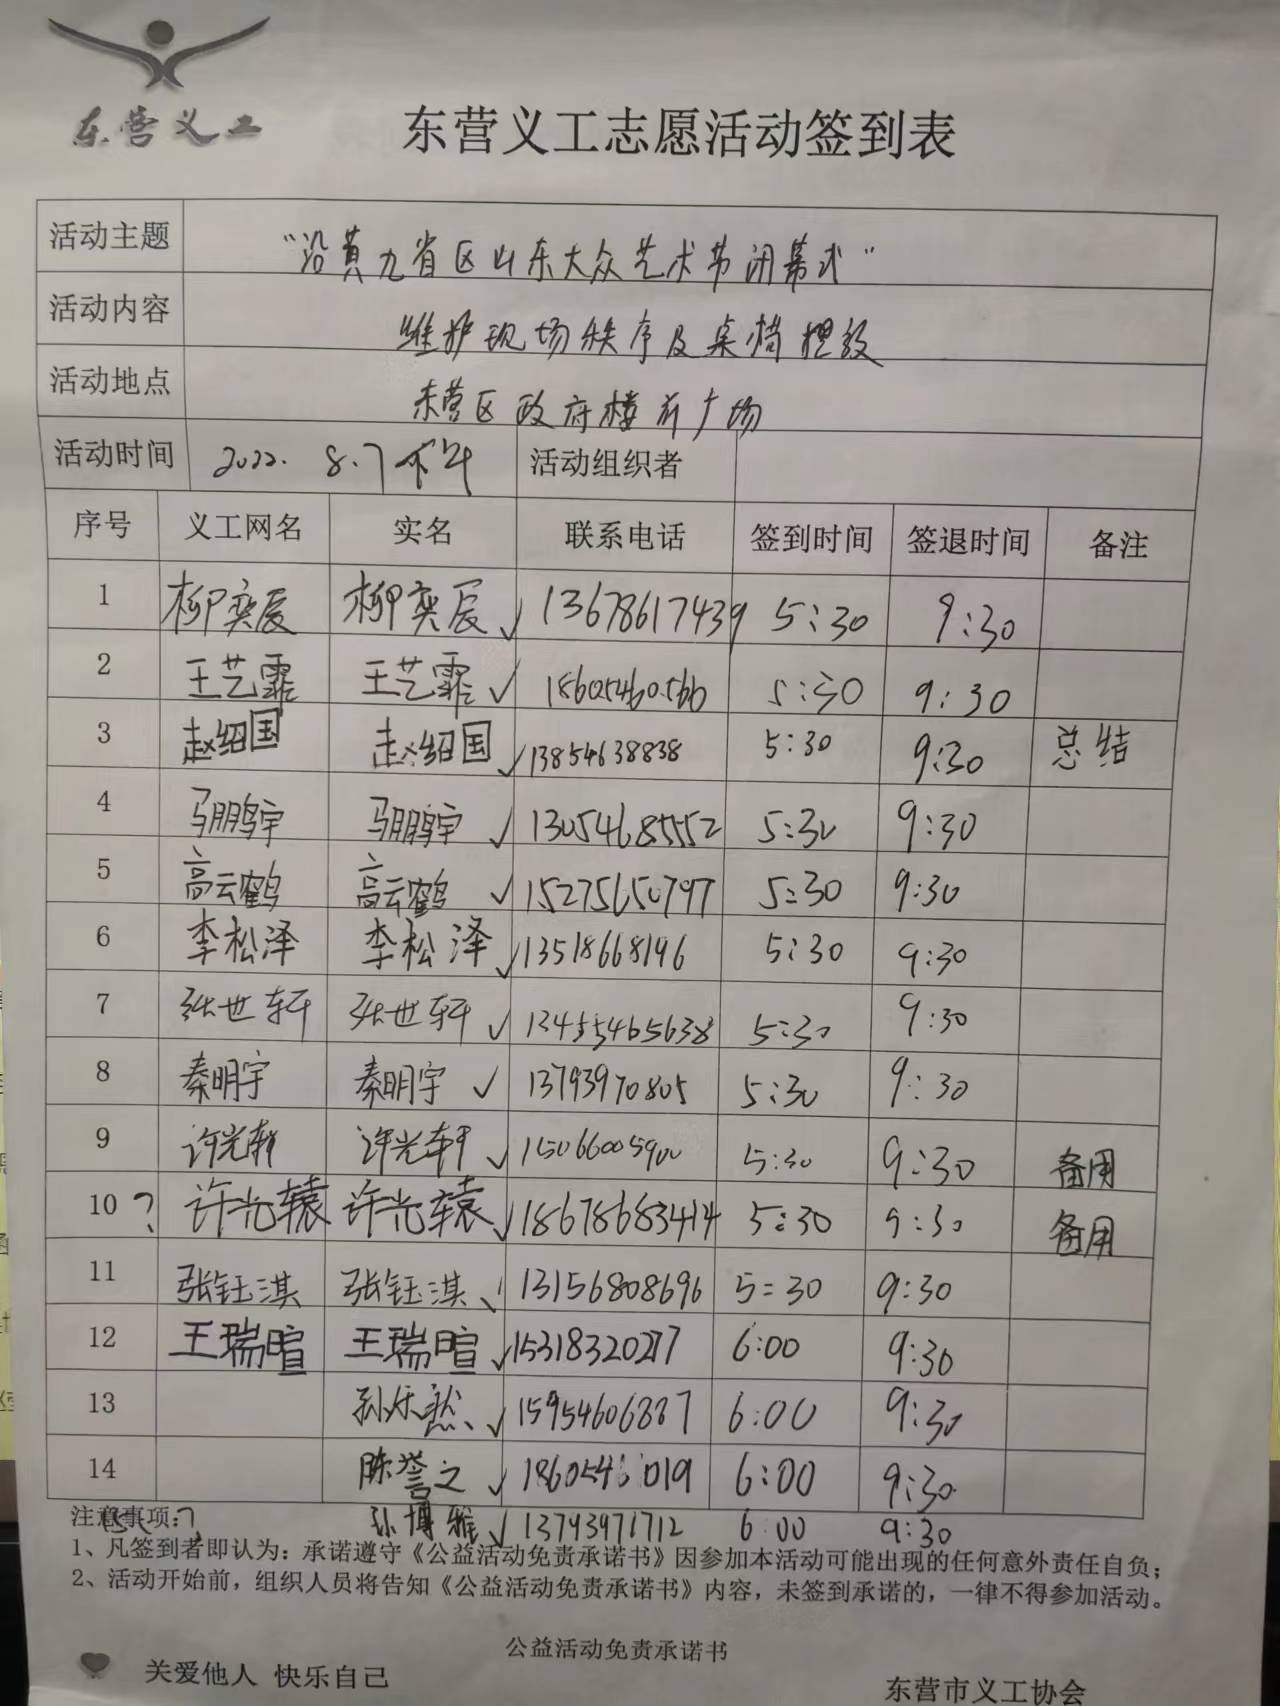 东营义工
东营义工志愿活动签到表
活动主题 "沿黄九省区山东大众艺术节闭幕式"
活动内容 维护现场秩序及桌椅摆放
活动地点 东营区政府楼前广场
活动时间 2022. 8.7下午 活动组织者
序号 义工网名 实名 联系电话 签到时间 签退时间 备注
1 柳奕辰 柳奕辰 ✓ 13678617439 5:30 9:30
2 王艺霏 王艺霏 ✓ 18605460566 5:30 9:30
3 赵绍国 赵绍国 ✓ 13854638838 5:30 9:30 总结
4 马鹏宇 马鹏宇 ✓ 13054685552 5:30 9:30
5 高云鹤 高云鹤 ✓ 15275650797 5:30 9:30
6 李松泽 李松泽 ✓ 13518668196 5:30 9:30
7 张世轩 张世轩 ✓ 13455465638 5:30 9:30
8 秦明宇 秦明宇 ✓ 13793970805 5:30 9:30
9 许光轩 许光轩 ✓ 15066005900 5:30 9:30 备用
10 ? 许光辕 许光辕 ✓ 18678683414 5:30 9:30 备用
11 张钰淇 张钰淇 ✓ 13156808696 5:30 9:30
12 王瑞暄 王瑞暄 ✓ 15318320217 6:00 9:30
13 孙乐然 ✓ 15954606887 6:00 9:30
14 陈誉之 ✓ 6:00 9:30
注意事项:
15 ? 孙博雅 ✓ 13793971712 6:00 9:30
1、凡签到者即认为：承诺遵守《公益活动免责承诺书》因参加本活动可能出现的任何意外责任自负；
2、活动开始前，组织人员将告知《公益活动免责承诺书》内容，未签到承诺的，一律不得参加活动。
公益活动免责承诺书
关爱他人 快乐自己
东营市义工协会